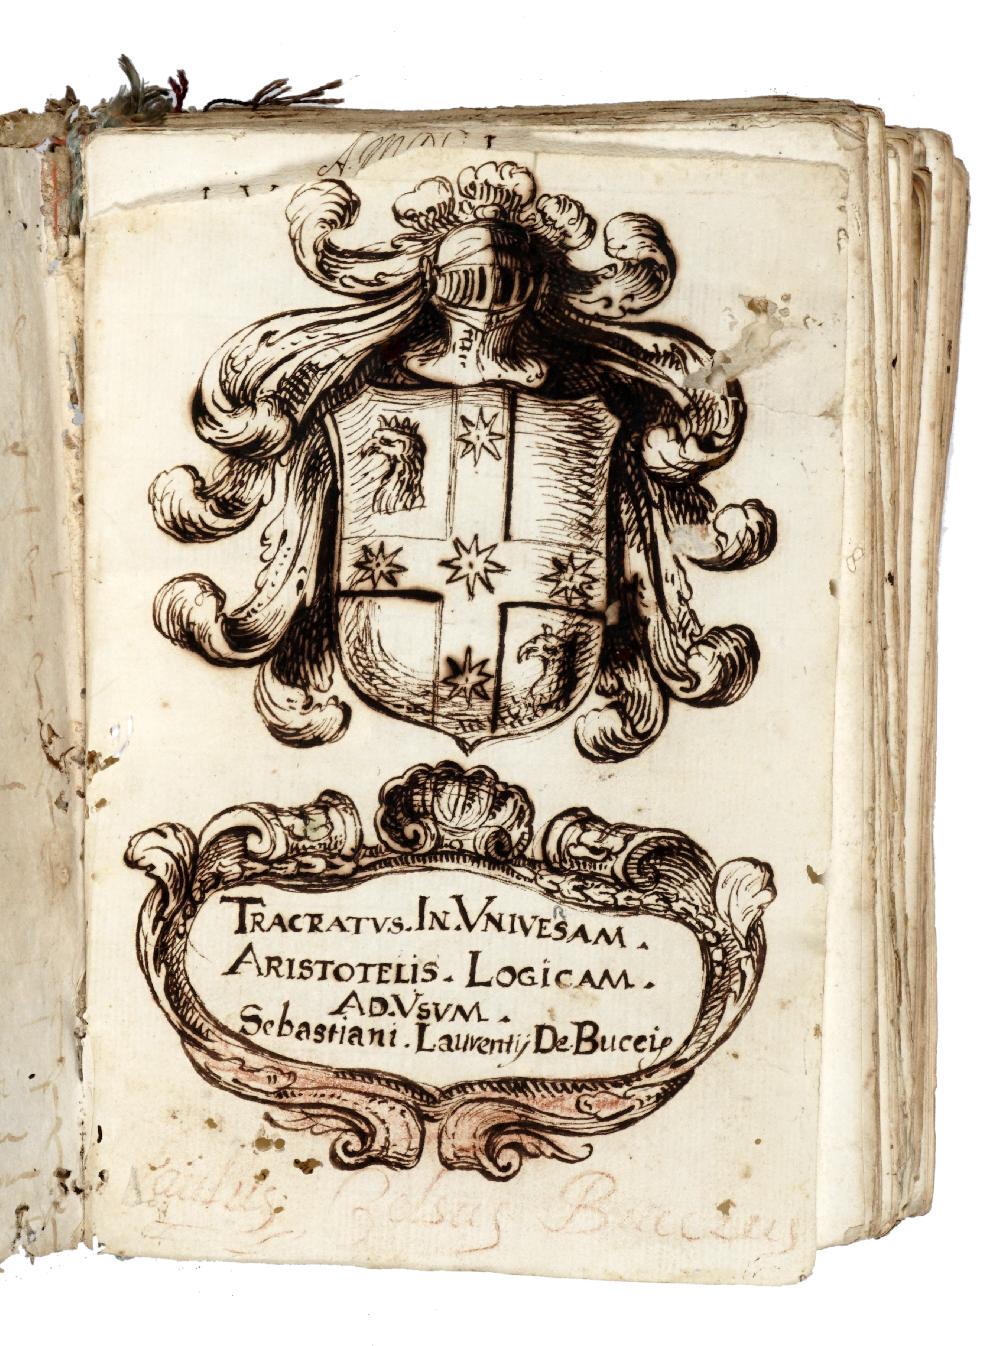 TRACRATVS.IN.VNIVERSAM.
ARISTOTELIS. LOGICAM.
AD.VSVM.
Sebastiani. Laurentij De.Bucceip
Celsus